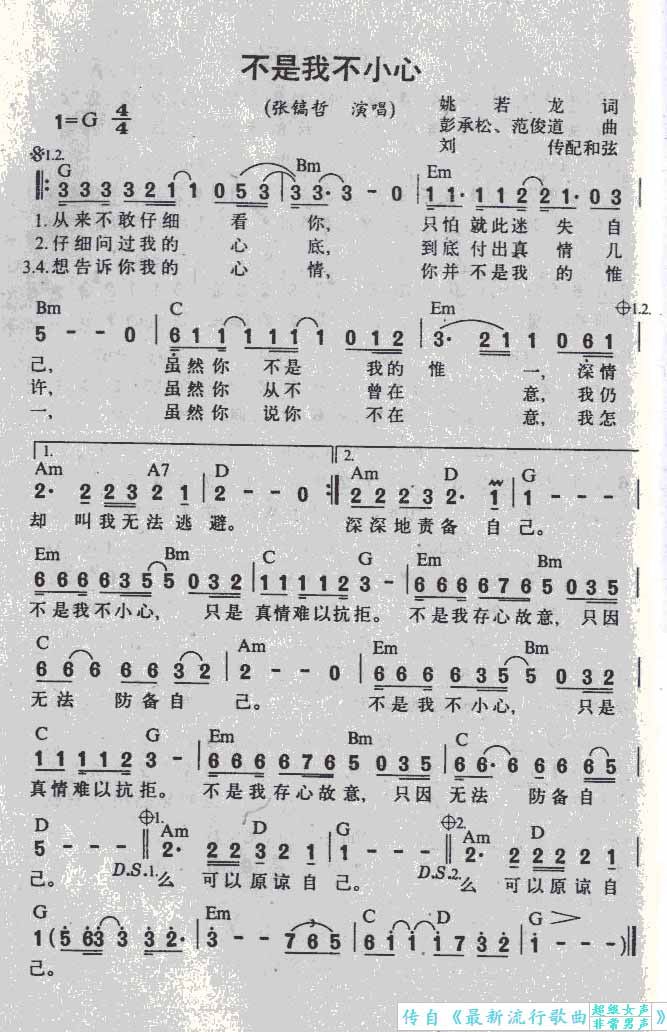 不是我不小心
(张镐哲 演唱)
1=G 4/4
姚若龙 词
彭承松、范俊道 曲
刘 传配和弦
1.2.
G Bm Em
3 3 3 3 2 1 1 0 5 3 | 3 3· 3 - 0 | 1 1· 1 1 2 2 1· 0 3
1.从来不敢仔细 看 你, 只怕 就此迷 失 自
2.仔细问过我的 心 底, 到底 付出真 情 几
3.4.想告诉你我的 心 情, 你并 不是我 的 惟
Bm C Em 1.2.
5 - - 0 | 6 1 1 1 1 1 1 1 0 1 2 | 3· 2 1 1 0 6 1
己, 虽然你 不是 我的 惟 一, 深情
许, 虽然你 从不 曾在 意, 我仍
一, 虽然你 说你 不在 意, 我怎
1. 2.
Am A7 D Am D G
2· 2 2 3 2 1 | 2 - - 0 :‖ 2 2 2 3 2· 1 | 1 - - -
却 叫我无法 逃 避。 深深地责备 自 己。
Em Bm C G Em Bm
6 6 6 6 3 5 5 0 3 2 | 1 1 1 1 2 3 - | 6 6 6 6 7 6 5 0 3 5
不是我不小心, 只是 真情难以抗拒。 不是我存心故意, 只因
C Am Em Bm
6 6 6 6 6 3 2 | 2 - - 0 | 6 6 6 6 3 5 5 0 3 2
无法 防备自 己。 不是我不小心, 只是
C G Em Bm C
1 1 1 1 2 3 - | 6 6 6 6 7 6 5 0 3 5 | 6 6· 6 6 6 6 5
真情难以抗拒。 不是我存心故意, 只因 无法 防备自
D 1. Am D G 2. Am D
5 - - - ‖ 2· 2 2 3 2 1 | 1 - - - ‖ 2· 2 2 2 2 1
己。 D.S.1. 么 可以原谅自己。 D.S.2. 么 可以原谅自
G Em C D G
1 (5 6 3 3 3 3 2· | 3 - - 7 6 5 | 6 1 1 1 7 3 2 | 1 - - -)‖
己。
传自《最新流行歌曲 超级女声
非常男声